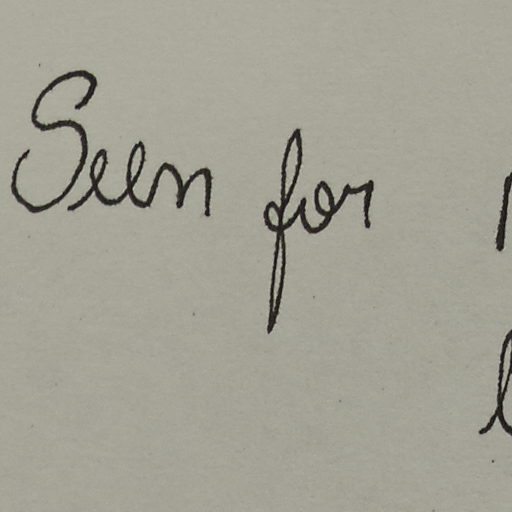 Seen for